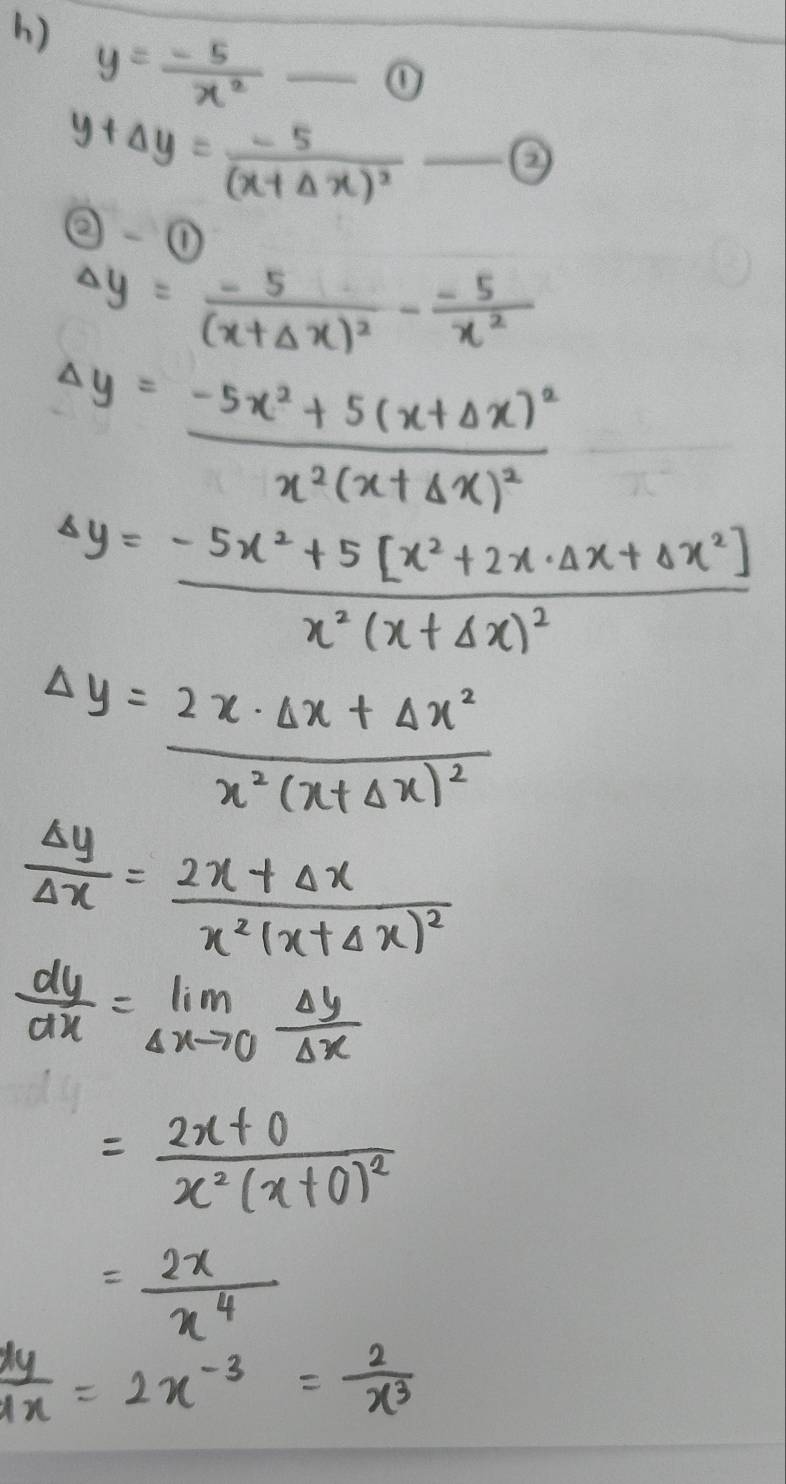 h) y = -5/x² — ①
y + Δy = -5/(x + Δx)² — ②
② - ①
Δy = -5/(x + Δx)² - -5/x²
Δy = (-5x² + 5(x + Δx)²)/(x²(x + Δx)²)
Δy = (-5x² + 5[x² + 2x·Δx + Δx²])/(x²(x + Δx)²)
Δy = (2x·Δx + Δx²)/(x²(x + Δx)²)
Δy/Δx = (2x + Δx)/(x²(x + Δx)²)
dy/dx = lim Δx→0 Δy/Δx
= (2x + 0)/(x²(x + 0)²)
= 2x/x⁴
dy/dx = 2x⁻³ = 2/x³